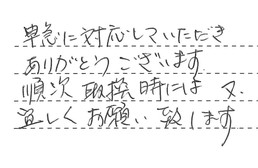 早急に対応していただき
ありがとうございます
順次取換時には又、
宜しくお願い致します